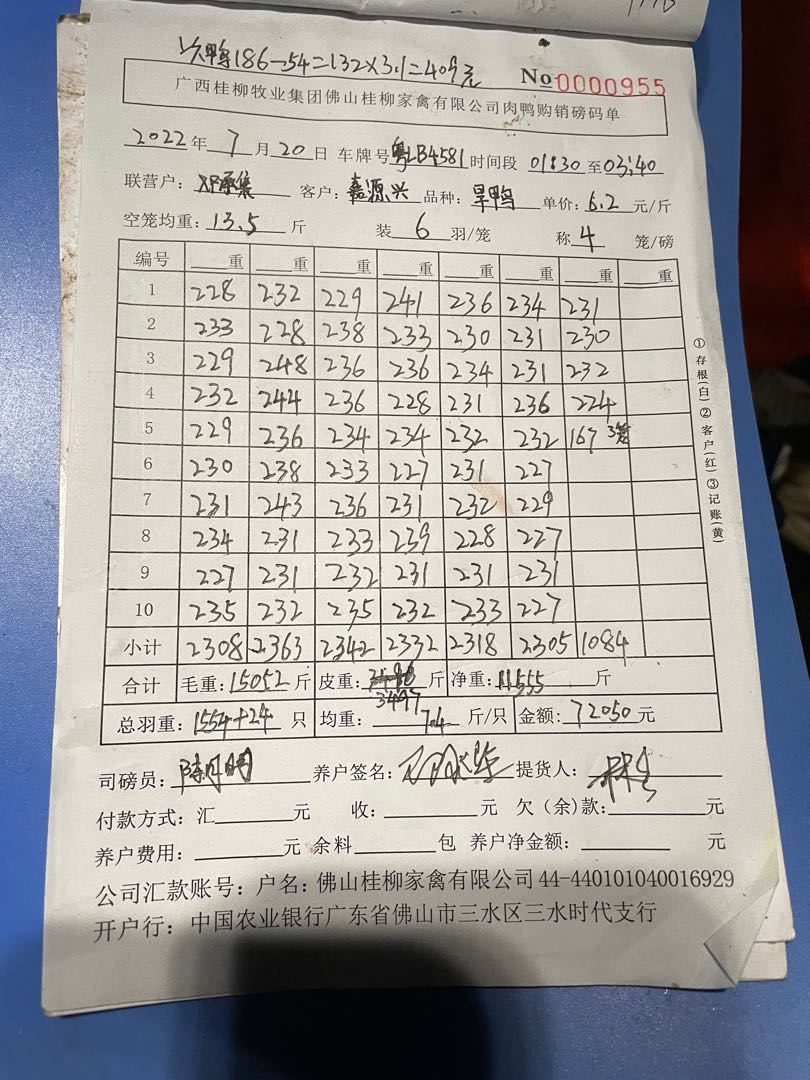 鸭186-54=132×3.1=409元
No 0000955
广西桂柳牧业集团佛山桂柳家禽有限公司肉鸭购销磅码单
2022年7月20日 车牌号粤LB4581时间段 01:30至03:40
联营户： 客户：嘉源兴 品种：旱鸭 单价：6.2元/斤
空笼均重：13.5斤 装 6 羽/笼 称 4 笼/磅
编号 重 重 重 重 重 重 重 重
1 228 232 229 241 236 234 231
2 233 228 238 233 230 231 230
3 229 248 236 236 234 231 232
4 232 244 236 228 231 236 224
5 229 236 234 234 232 232 167 3笼
6 230 238 233 227 231 227
7 231 243 236 231 232 229
8 234 231 233 239 228 227
9 227 231 232 231 231 231
10 235 232 235 232 233 227
小计 2308 2363 2342 2332 2318 2305 1084
合计 毛重：15052斤 皮重：3497斤 净重：11555斤
总羽重：1554+24只 均重：7.4斤/只 金额：72050元
司磅员： 养户签名： 提货人：
付款方式：汇 元 收： 元 欠（余）款： 元
养户费用： 元 余料 包 养户净金额： 元
公司汇款账号：户名：佛山桂柳家禽有限公司 44-440101040016929
开户行：中国农业银行广东省佛山市三水区三水时代支行
①存根(白)②客户(红)③记账(黄)